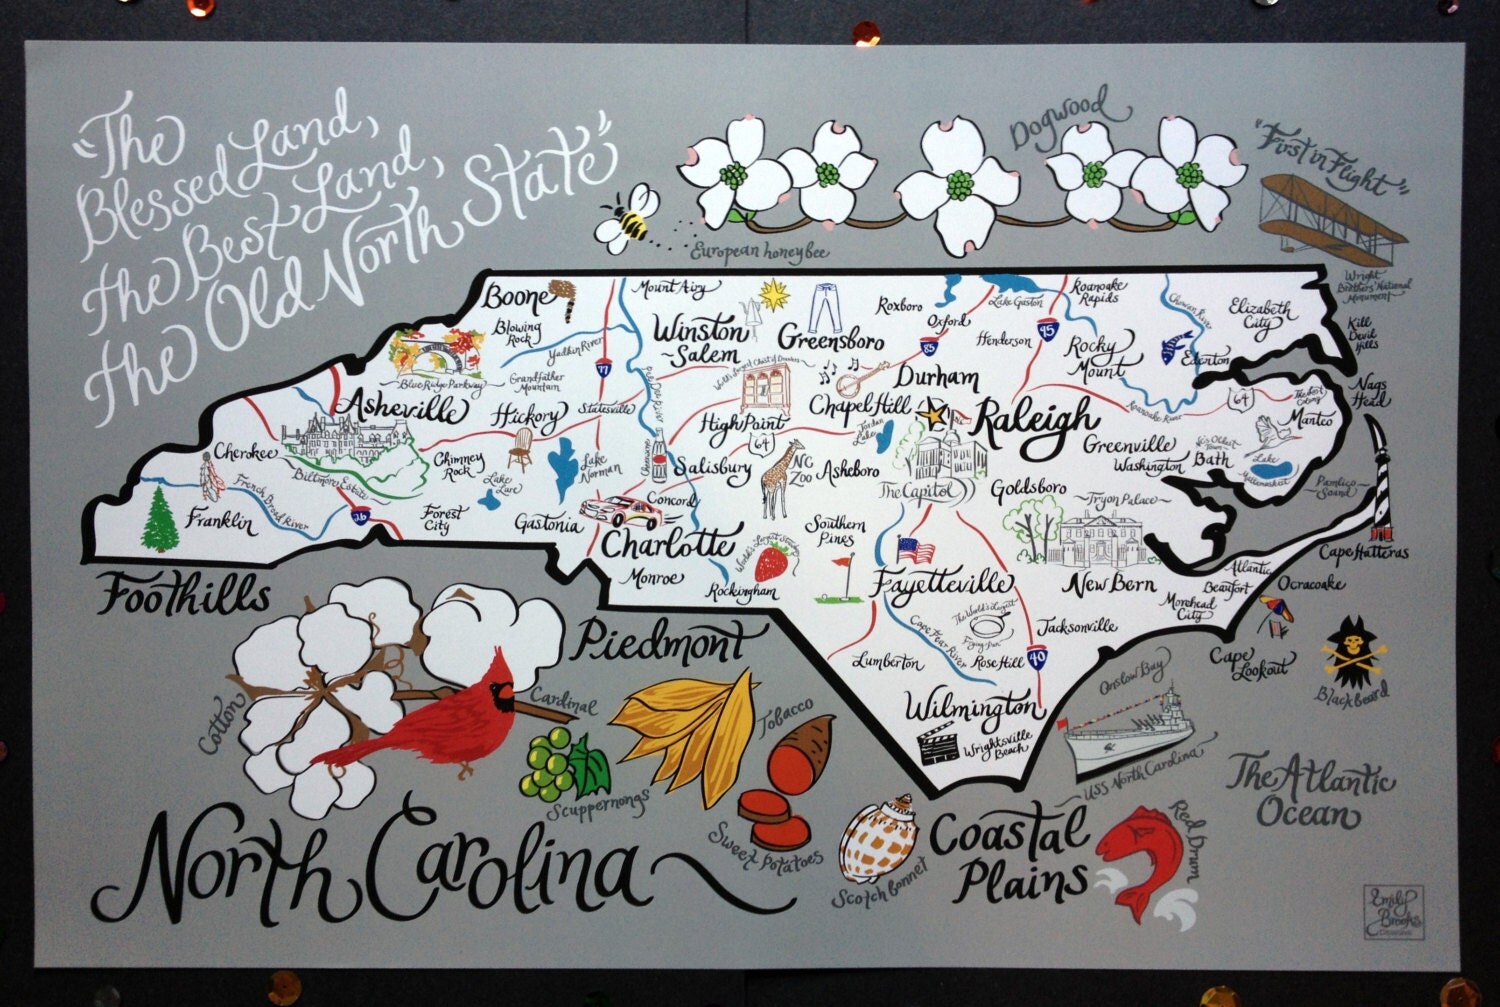 "The
Blessed Land,
the Best Land,
the Old North State"
Dogwood
"First in Flight"
European honeybee
Wright
Brothers' National
Monument
Boone
Mount Airy
Blowing
Rock
Yadkin River
Winston
~Salem
Greensboro
Roxboro
Oxford
Lake Gaston
Roanoake
Rapids
Henderson
85
95
Rocky
Mount
Chowan River
Edenton
Elizabeth
City
Kill
Devil
Hills
Nags
Head
Blue Ridge Parkway
Grandfather
Mountain
77
World's Largest Chest of Drawers
Durham
Chapel Hill
Raleigh
Roanoake River
64
Manteo
Asheville
Hickory
Statesville
High Point
64
Jordan
Lake
Greenville
Washington
Bath
Lake
Cherokee
Biltmore Estate
Chimney
Rock
Lake
Lure
Lake
Norman
Cheerwine
Salisbury
NC
Zoo
Asheboro
The Capitol
Goldsboro
~Tryon Palace~
Pamlico
Sound
Franklin
French Broad River
26
Forest
City
Gastonia
Concord
Charlotte
Southern
Pines
World's Largest Strawberry
Cape Hatteras
Monroe
Rockingham
Fayetteville
New Bern
Atlantic
Beaufort
Ocracoake
Morehead
City
Foothills
Piedmont
The World's Largest
Frying Pan
Cape Fear River
Jacksonville
Lumberton
Rose Hill
40
Cape
Lookout
Blackbeard
Onslow Bay
Wilmington
Wrightsville
Beach
USS North Carolina
The Atlantic
Ocean
Cotton
Cardinal
Tobacco
Scuppernongs
Sweet Potatoes
Scotch Bonnet
Coastal
Plains
Red Drum
North Carolina
Emily
Brooks